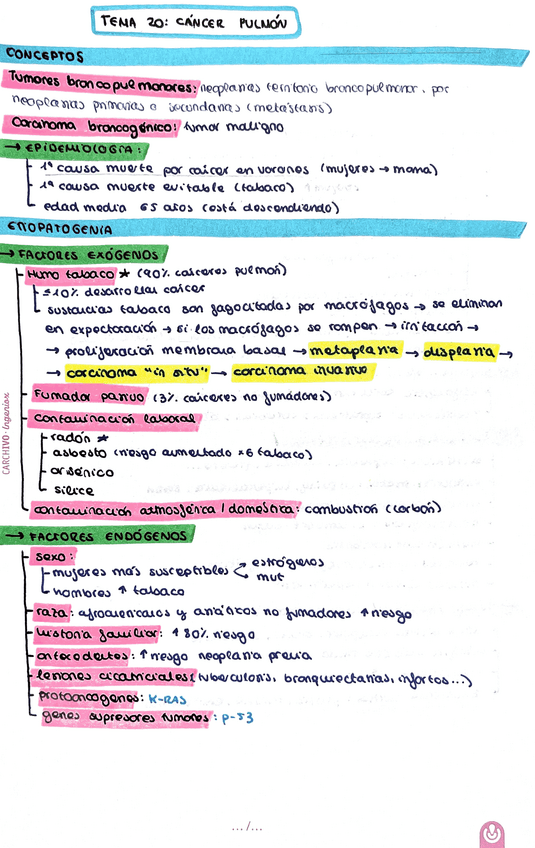 TEMA 20: CÁNCER PULMÓN
CONCEPTOS
Tumores broncopulmonares: neoplasias territorio broncopulmonar, por
neoplasias primarias o secundarias (metástasis)
Carcinoma broncogénico: tumor maligno
→ EPIDEMIOLOGÍA:
1ª causa muerte por cáncer en varones (mujeres → mama)
1ª causa muerte evitable (tabaco)
edad media 65 años (está descendiendo)
ETIOPATOGENIA
→ FACTORES EXÓGENOS
Humo tabaco ★ (90% cánceres pulmón)
≤10% desarrollan cáncer
sustancias tabaco son fagocitadas por macrófagos → se eliminan
en expectoración → si los macrófagos se rompen → irritación →
→ proliferación membrana basal → metaplasia → displasia →
→ carcinoma "in situ" → carcinoma invasivo
Fumador pasivo (3% cánceres no fumadores)
Contaminación laboral
radón ★
asbesto (riesgo aumentado x6 tabaco)
arsénico
sílice
contaminación atmosférica / doméstica: combustión (carbón)
→ FACTORES ENDÓGENOS
sexo:
mujeres más susceptibles < estrógenos
mut
hombres ↑ tabaco
raza: afroamericanos y asiáticos no fumadores ↑ riesgo
historia familiar: ↑ 80% riesgo
antecedentes: ↑ riesgo neoplasia previa
lesiones cicatriciales (tuberculosis, bronquiectasias, infartos...)
protooncogenes: K-RAS
genes supresores tumores: p-53
CARCHIVO - Ingenios
.../...